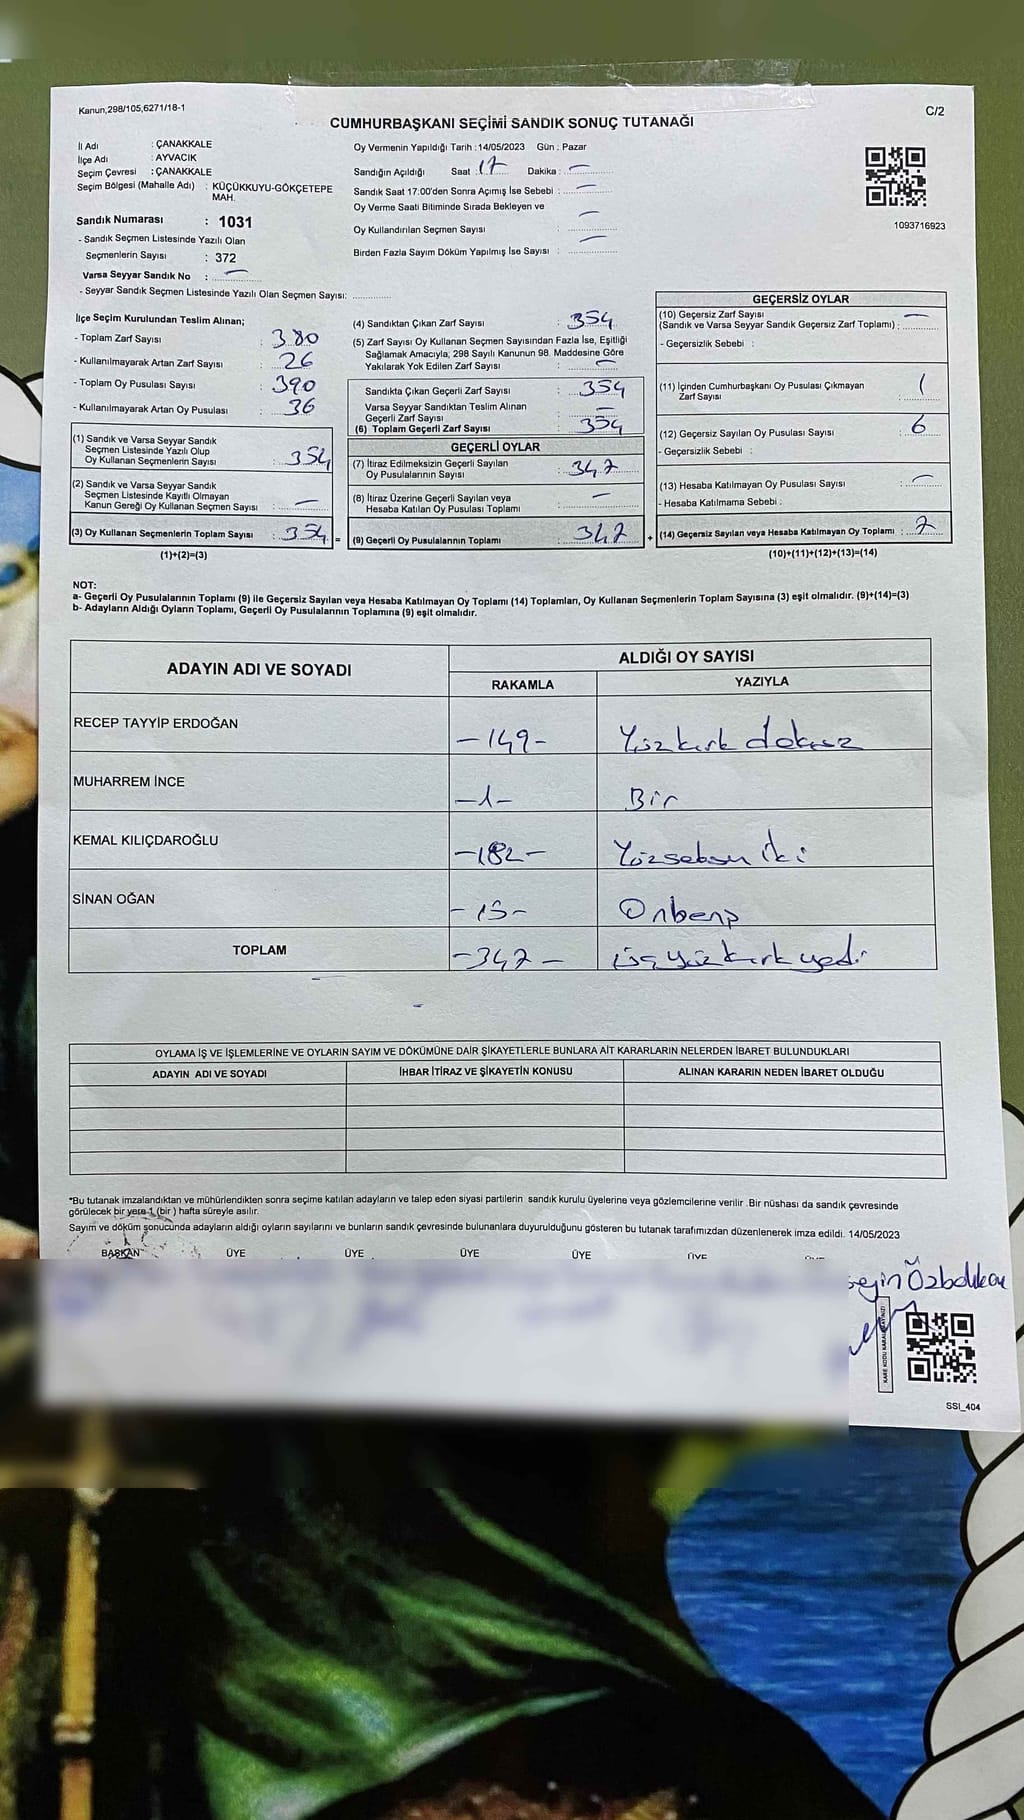 Kanun,298/105,6271/18-1
C/2
CUMHURBAŞKANI SEÇİMİ SANDIK SONUÇ TUTANAĞI
İl Adı : ÇANAKKALE
İlçe Adı : AYVACIK
Seçim Çevresi : ÇANAKKALE
Seçim Bölgesi (Mahalle Adı) : KÜÇÜKKUYU-GÖKÇETEPE
MAH.
Sandık Numarası : 1031
- Sandık Seçmen Listesinde Yazılı Olan
Seçmenlerin Sayısı : 372
Varsa Seyyar Sandık No : —
- Seyyar Sandık Seçmen Listesinde Yazılı Olan Seçmen Sayısı:
Oy Vermenin Yapıldığı Tarih :14/05/2023 Gün : Pazar
Sandığın Açıldığı Saat : 17 Dakika : —
Sandık Saat 17:00'den Sonra Açımış İse Sebebi : —
Oy Verme Saati Bitiminde Sırada Bekleyen ve
Oy Kullandırılan Seçmen Sayısı : —
Birden Fazla Sayım Döküm Yapılmış İse Sayısı : —
1093716923
İlçe Seçim Kurulundan Teslim Alınan;
- Toplam Zarf Sayısı : 380
- Kullanılmayarak Artan Zarf Sayısı : 26
- Toplam Oy Pusulası Sayısı : 390
- Kullanılmayarak Artan Oy Pusulası : 36
(1) Sandık ve Varsa Seyyar Sandık
Seçmen Listesinde Yazılı Olup
Oy Kullanan Seçmenlerin Sayısı : 354
(2) Sandık ve Varsa Seyyar Sandık
Seçmen Listesinde Kayıtlı Olmayan
Kanun Gereği Oy Kullanan Seçmen Sayısı : —
(3) Oy Kullanan Seçmenlerin Toplam Sayısı : 354 =
(1)+(2)=(3)
(4) Sandıktan Çıkan Zarf Sayısı : 354
(5) Zarf Sayısı Oy Kullanan Seçmen Sayısından Fazla İse, Eşitliği
Sağlamak Amacıyla, 298 Sayılı Kanunun 98. Maddesine Göre
Yakılarak Yok Edilen Zarf Sayısı : —
Sandıkta Çıkan Geçerli Zarf Sayısı : 354
Varsa Seyyar Sandıktan Teslim Alınan
Geçerli Zarf Sayısı : —
(6) Toplam Geçerli Zarf Sayısı : 354
GEÇERLİ OYLAR
(7) İtiraz Edilmeksizin Geçerli Sayılan
Oy Pusulalarının Sayısı : 347
(8) İtiraz Üzerine Geçerli Sayılan veya
Hesaba Katılan Oy Pusulası Toplamı : —
(9) Geçerli Oy Pusulalarının Toplamı : 347 +
GEÇERSİZ OYLAR
(10) Geçersiz Zarf Sayısı
(Sandık ve Varsa Seyyar Sandık Geçersiz Zarf Toplamı) : —
- Geçersizlik Sebebi :
(11) İçinden Cumhurbaşkanı Oy Pusulası Çıkmayan
Zarf Sayısı : 1
(12) Geçersiz Sayılan Oy Pusulası Sayısı : 6
- Geçersizlik Sebebi :
(13) Hesaba Katılmayan Oy Pusulası Sayısı : —
- Hesaba Katılmama Sebebi :
(14) Geçersiz Sayılan veya Hesaba Katılmayan Oy Toplamı : 7
(10)+(11)+(12)+(13)=(14)
NOT:
a- Geçerli Oy Pusulalarının Toplamı (9) ile Geçersiz Sayılan veya Hesaba Katılmayan Oy Toplamı (14) Toplamları, Oy Kullanan Seçmenlerin Toplam Sayısına (3) eşit olmalıdır. (9)+(14)=(3)
b- Adayların Aldığı Oyların Toplamı, Geçerli Oy Pusulalarının Toplamına (9) eşit olmalıdır.
ADAYIN ADI VE SOYADI
ALDIĞI OY SAYISI
RAKAMLA YAZIYLA
RECEP TAYYİP ERDOĞAN -149- Yüzkırk dokuz
MUHARREM İNCE -1- Bir
KEMAL KILIÇDAROĞLU -182- Yüzseksen İki
SİNAN OĞAN -15- Onbeş
TOPLAM -347- üçyüzkırkyedi
OYLAMA İŞ VE İŞLEMLERİNE VE OYLARIN SAYIM VE DÖKÜMÜNE DAİR ŞİKAYETLERLE BUNLARA AİT KARARLARIN NELERDEN İBARET BULUNDUKLARI
ADAYIN ADI VE SOYADI İHBAR İTİRAZ VE ŞİKAYETİN KONUSU ALINAN KARARIN NEDEN İBARET OLDUĞU
*Bu tutanak imzalandıktan ve mühürlendikten sonra seçime katılan adayların ve talep eden siyasi partilerin sandık kurulu üyelerine veya gözlemcilerine verilir .Bir nüshası da sandık çevresinde
görülecek bir yere 1 (bir ) hafta süreyle asılır.
Sayım ve döküm sonucunda adayların aldığı oyların sayılarını ve bunların sandık çevresinde bulunanlara duyurulduğunu gösteren bu tutanak tarafımızdan düzenlenerek imza edildi. 14/05/2023
BAŞKAN ÜYE ÜYE ÜYE ÜYE ÜYE
SSI_404